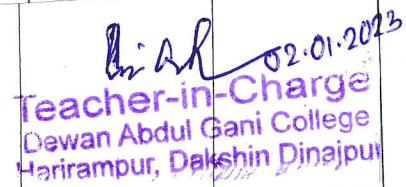 02.01.2023
Teacher-in-Charge
Dewan Abdul Gani College
Harirampur, Dakshin Dinajpur